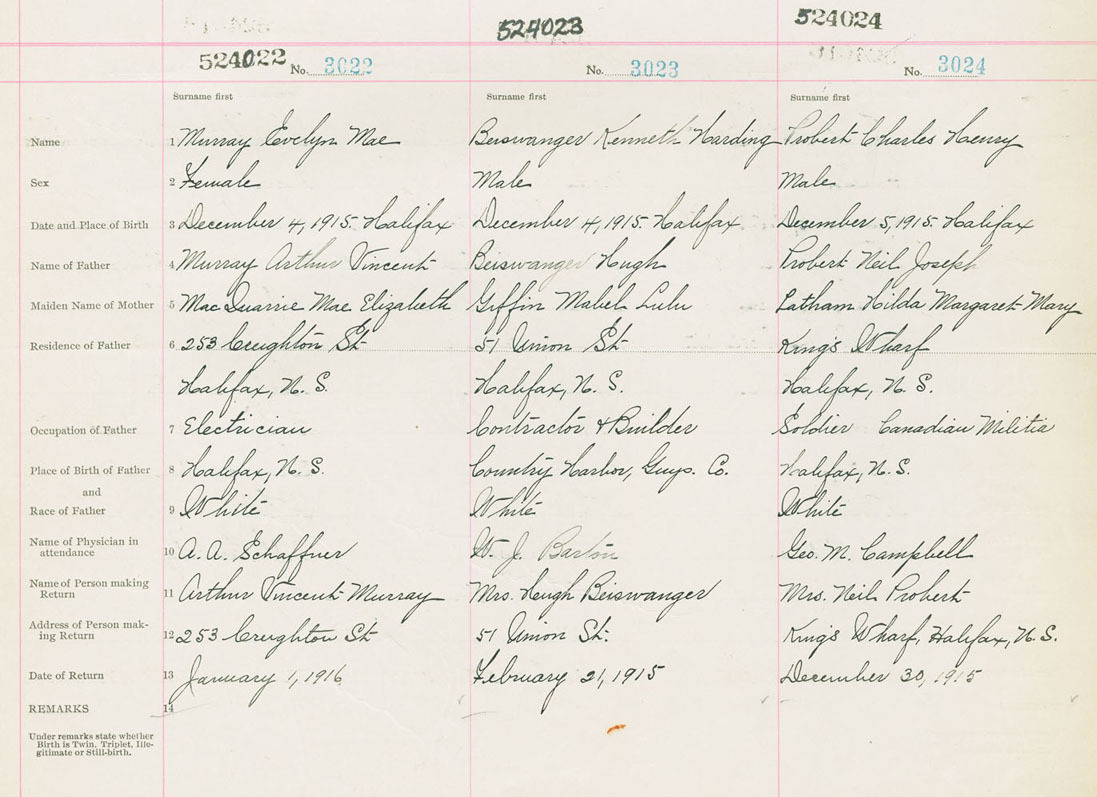 524022 524023 524024
No. 3022 No. 3023 No. 3024
Surname first Surname first Surname first
Name 1 Murray Evelyn Mae Beiswanger Kenneth Harding Probert Charles Henry
Sex 2 Female Male Male
Date and Place of Birth 3 December 4, 1915. Halifax December 4, 1915. Halifax December 5, 1915. Halifax
Name of Father 4 Murray Arthur Vincent Beiswanger Hugh Probert Neil Joseph
Maiden Name of Mother 5 MacQuarrie Mae Elizabeth Giffin Mabel Lulu Latham Hilda Margaret Mary
Residence of Father 6 253 Creighton St 51 Union St King's Wharf
Halifax, N. S. Halifax, N. S. Halifax, N. S.
Occupation of Father 7 Electrician Contractor & Builder Soldier Canadian Militia
Place of Birth of Father 8 Halifax, N. S. Country Harbor, Guys. Co. Halifax, N. S.
and
Race of Father 9 White White White
Name of Physician in
attendance 10 A. A. Schaffner W. J. Barton Geo. M. Campbell
Name of Person making
Return 11 Arthur Vincent Murray Mrs. Hugh Beiswanger Mrs. Neil Probert
Address of Person mak-
ing Return 12 253 Creighton St 51 Union St. King's Wharf, Halifax, N. S.
Date of Return 13 January 1, 1916 February 21, 1915 December 30, 1915
REMARKS 14
Under remarks state whether
Birth is Twin, Triplet, Ille-
gitimate or Still-birth.